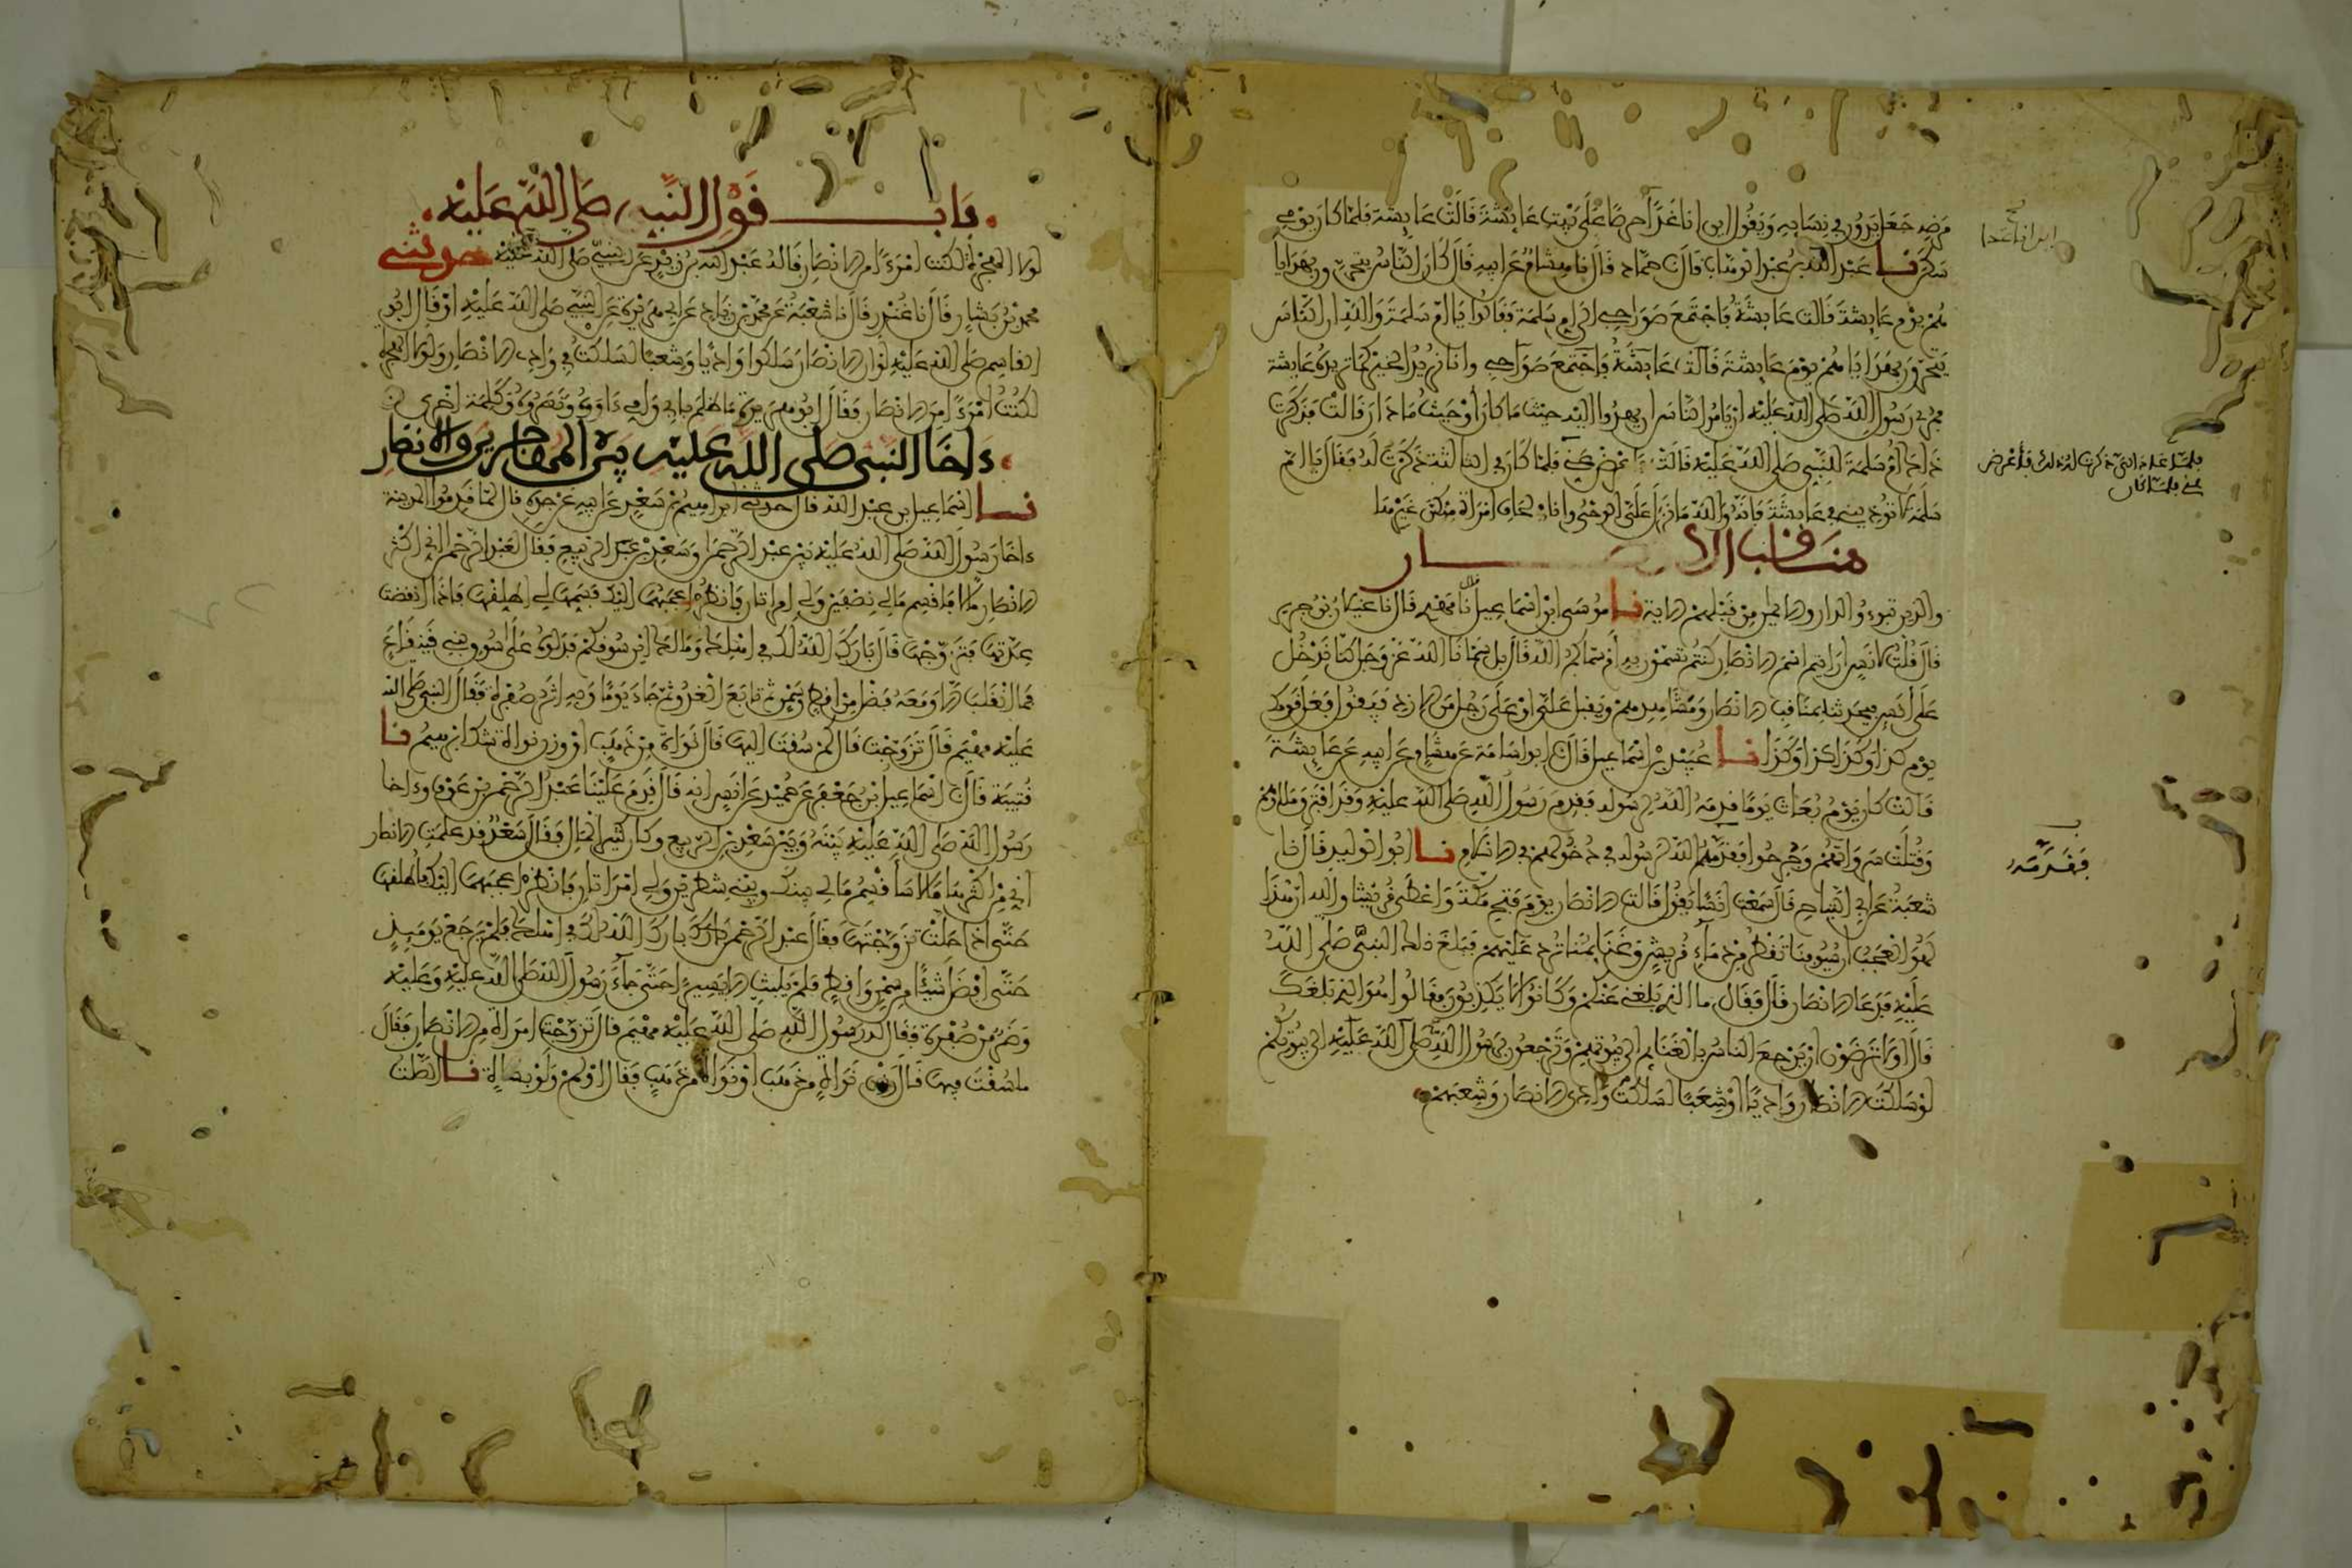 مرضه جعل يدور في نسايه ويقول اين انا غدا حرصا على بيت عايشة قالت عايشة فلما كان يومي
سكن نا عبد الله بن عبد الوهاب قال نا حماد قال نا هشام عن ابيه قال كان الناس يتحرون بهداياهم
يوم عايشة قالت عايشة فاجتمع صواحبي الى ام سلمة فقالوا يا ام سلمة والله ان الناس
يتحرون بهداياهم يوم عايشة قالت عايشة فاجتمع صواحبي وانا نريد الخير كما تريده عايشة
فمري رسول الله صلى الله عليه ان يامر الناس ان يهدوا اليه حيث ما كان او حيث ما دار قالت فذكرت
ذلك ام سلمة للنبي صلى الله عليه قالت فاعرض عني فلما كان في الثالثة ذكرت له فقال يا ام
سلمة لا توذيني في عايشة فانه والله ما نزل علي الوحي وانا في لحاف امراة منكن غيرها
مناقب الانصار
والذين تبوءو الدار والايمان من قبلهم الاية نا موسى بن اسماعيل نا مهدي قال نا غيلان بن جرير
قال قلت لانس ارايتم اسم الانصار كنتم تسمون به ام سماكم الله قال بل سمانا الله عز وجل كنا ندخل
على انس فيحدثنا بمناقب الانصار ومشاهدهم ويقبل علي او على رجل من الازد فيقول فعل قومك
يوم كذا وكذا كذا وكذا نا عبيد بن اسماعيل قال نا ابو اسامة عن هشام عن ابيه عن عايشة
قالت كان يوم بعاث يوما قدمه الله لرسوله فقدم رسول الله صلى الله عليه وقد افترق ملاؤهم
وقتلت سرواتهم وجرحوا فقدمه الله لرسوله في دخولهم في الاسلام نا ابو الوليد قال نا
شعبة عن ابي التياح قال سمعت انسا يقول قالت الانصار يوم فتح مكة واعطى قريشا والله ان هذا
لهو العجب ان سيوفنا تقطر من دماء قريش وغنايمنا ترد عليهم فبلغ ذلك النبي صلى الله
عليه فدعا الانصار قال فقال ما الذي بلغني عنكم وكانوا لا يكذبون فقالوا هو الذي بلغك
قال اولا ترضون ان يرجع الناس بالغنايم الى بيوتهم وترجعون برسول الله صلى الله عليه الى بيوتكم
لو سلكت الانصار واديا او شعبا لسلكت وادي الانصار وشعبهم
اين انا غدا
فقدمه
باب قول النبي صلى الله عليه
لولا الهجرة لكنت امرءا من الانصار قاله عبد الله بن زيد عن النبي صلى الله عليه حدثني
محمد بن بشار قال نا غندر قال نا شعبة عن محمد بن زياد عن ابي هريرة عن النبي صلى الله عليه او قال ابو
القاسم صلى الله عليه لو ان الانصار سلكوا واديا وشعبا لسلكت في وادي الانصار ولولا الهجرة
لكنت امرءا من الانصار فقال ابو هريرة ما ظلم بابي وامي ءاووه ونصروه وكلمة اخرى
ءاخا النبي صلى الله عليه بين المهاجرين والانصار
نا اسماعيل بن عبد الله قال حدثني ابراهيم بن سعد عن ابيه عن جده قال لما قدموا المدينة
ءاخا رسول الله صلى الله عليه بين عبد الرحمن وسعد بن الربيع فقال لعبد الرحمن اني اكثر
الانصار مالا فاقسم مالي نصفين ولي امراتان فانظر اعجبهما اليك فسمها لي اطلقها فاذا انقضت
عدتها فتزوجها قال بارك الله لك في اهلك ومالك اين سوقكم فدلوه على سوق بني قينقاع
فما انقلب الا ومعه فضل من اقط وسمن ثم تابع الغدو ثم جاء يوما وبه اثر صفرة فقال النبي صلى الله
عليه مهيم قال تزوجت قال كم سقت اليها قال نواة من ذهب او وزن نواة شك ابراهيم نا
قتيبة قال نا اسماعيل بن جعفر عن حميد عن انس انه قال قدم علينا عبد الرحمن بن عوف وءاخا
رسول الله صلى الله عليه بينه وبين سعد بن الربيع وكان كثير المال فقال سعد قد علمت الانصار
اني من اكثرها مالا ساقسم مالي بيني وبينك شطرين ولي امراتان فانظر اعجبهما اليك فاطلقها
حتى اذا حلت تزوجتها فقال عبد الرحمن بارك الله لك في اهلك فلم يرجع يوميذ
حتى افضل شيئا من سمن واقط فلم يلبث الا يسيرا حتى جاء رسول الله صلى الله عليه وعليه
وضر من صفرة فقال له رسول الله صلى الله عليه مهيم قال تزوجت امراة من الانصار فقال
ما سقت فيها قال وزن نواة من ذهب او نواة من ذهب فقال اولم ولو بشاة نا الصلت